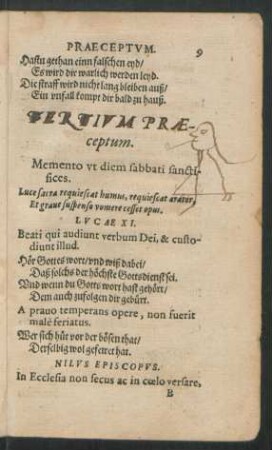 PRAECEPTVM. 9
Hastu gethan einn falschen eyd/
Es wird die warlich werden leyd.
Die straff wird nicht lang bleiben auß/
Ein vnfall kompt dir bald zu hauß.
TERTIVM PRÆ-
ceptum.
Memento vt diem sabbati sancti-
fices.
Luce sacra requiescat humus, requiescat arater,
Et graue suspenso vomere cesset opus.
LVCAE XI.
Beati qui audiunt verbum Dei, & custo-
diunt illud.
Hör Gottes wort/ vnd wiß dabei/
Daß solchs der höchste Gottsdienst sei.
Vnd wenn du Gotts wort hast gehört/
Dem auch zufolgen dir gebürt.
A prauo temperans opere, non fuerit
malè feriatus.
Wer sich hüt vor der bösen that/
Derselbig wol gefeyret hat.
NILVS EPISCOPVS.
In Ecclesia non secus ac in cœlo versare,
B